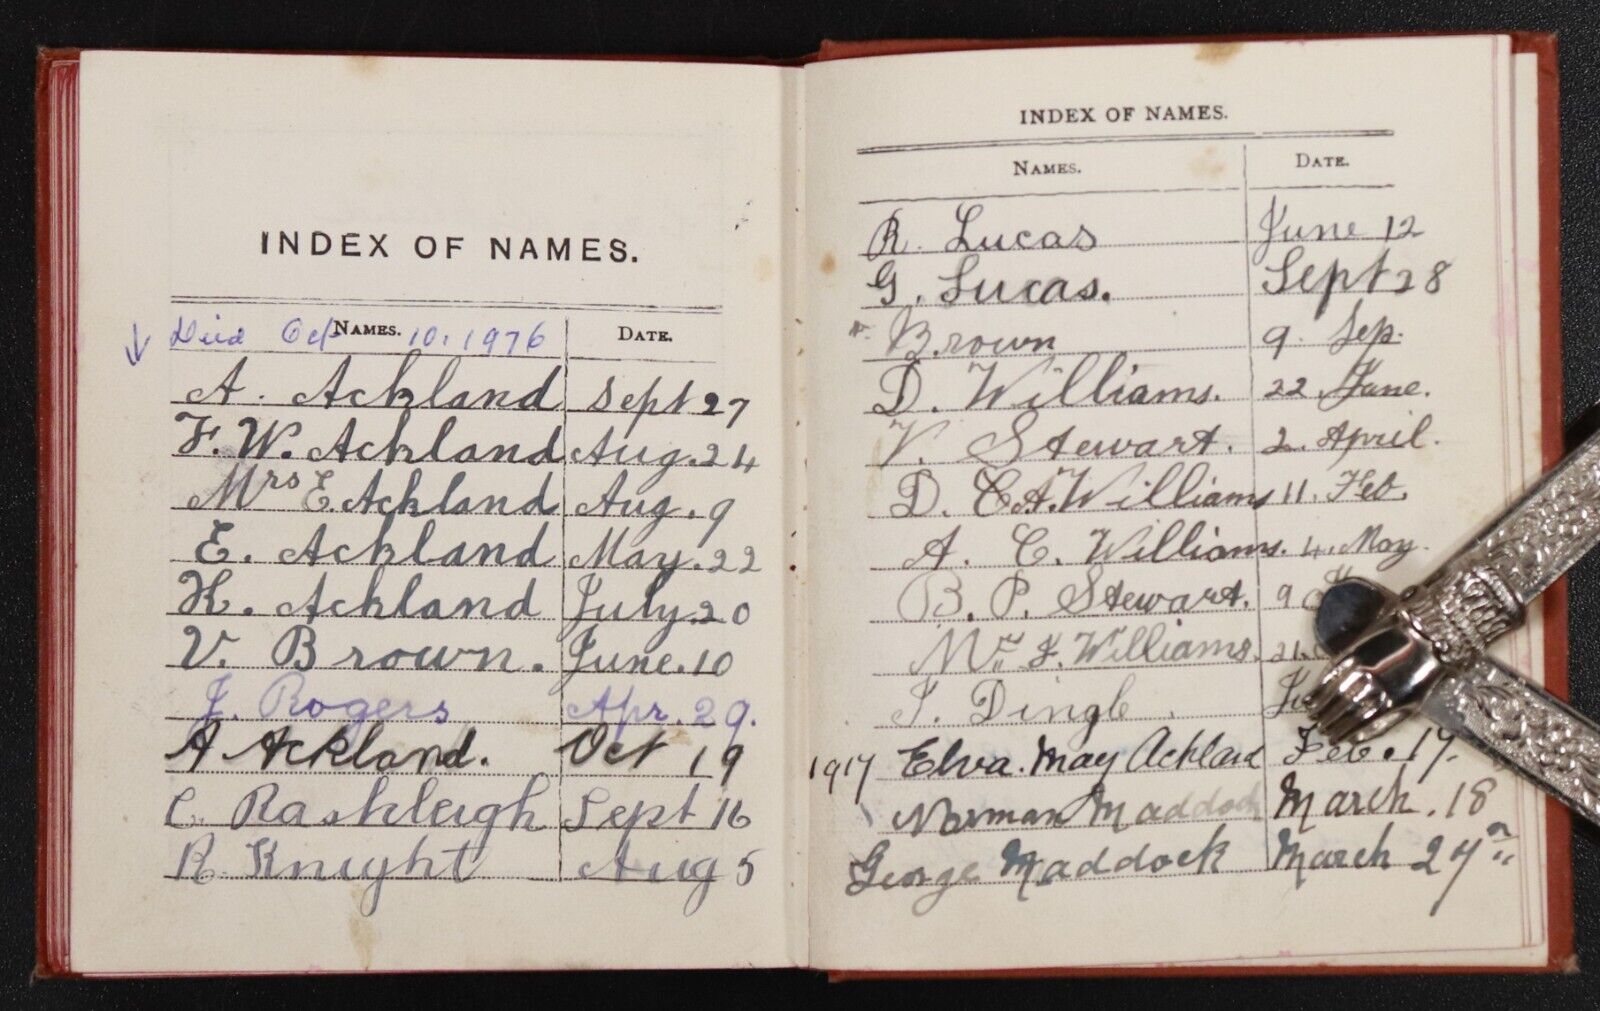 INDEX OF NAMES.
NAMES. DATE.
Died Oct 10. 1976
A. Ackland Sept 27
F. W. Ackland Aug. 24
Mrs E. Ackland Aug. 9
E. Ackland May. 22
H. Ackland July. 20
V. Brown. June. 10
J. Rogers Apr. 29.
A Ackland. Oct 19
C. Rashleigh Sept 16
R. Knight Aug 5
INDEX OF NAMES.
NAMES. DATE.
R. Lucas June 12
G. Lucas. Sept 28
Brown 9. Sep.
D. Williams. 22 June.
V. Stewart. 2. April.
D. C. A. Williams 11. Feb.
A. C. Williams. 4. May.
B. P. Stewart. 9
Mr. F. Williams. 21.
Dingle
1917 Elva. May Ackland Feb. 17.
Norman Maddock March. 18
George Maddock March